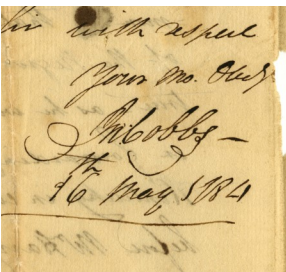 Sir with respect
Your Mo. Obed.
Jn Cobbs
16th May 1784